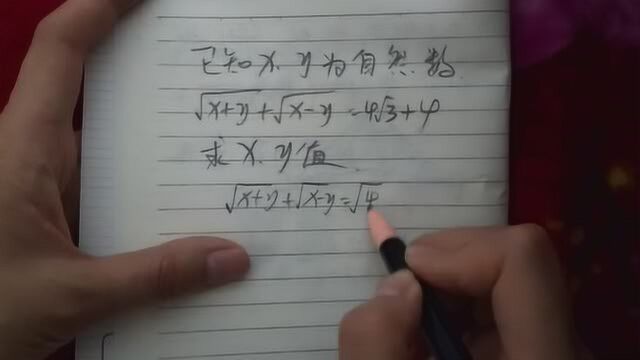 已知x.y为自然数
√x+y+√x-y=4√3+4
求x.y值
√x+y+√x-y=√4